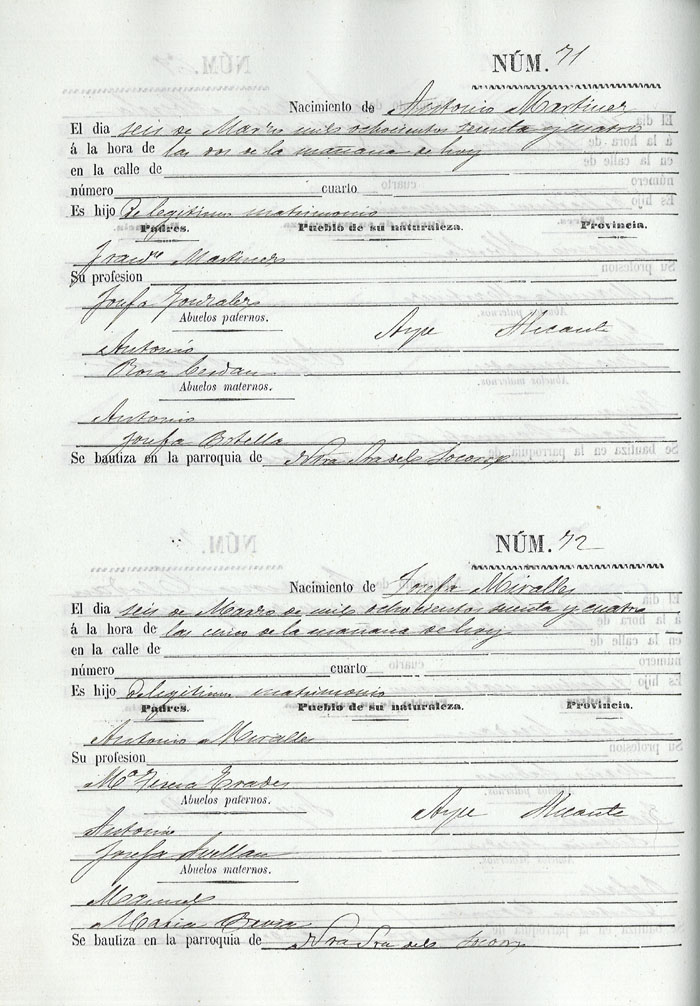 NÚM. 71
Nacimiento de Antonio Martinez
El dia seis de Marzo mil ochocientos sesenta y cuatro
á la hora de las dos de la mañana de hoy
en la calle de
número cuarto
Es hijo de legitimo matrimonio
Padres. Pueblo de su naturaleza. Provincia.
Martinez
Su profesion
Josefa Gonzalez
Abuelos paternos.
Aspe Alicante
Antonio
Rosa Cerdan
Abuelos maternos.
Antonio
Josefa Botella
Se bautiza en la parroquia de Ntra Sra del Socorro
NÚM. 72
Nacimiento de Josefa Miralles
El dia seis de Marzo de mil ochocientos sesenta y cuatro
á la hora de las cinco de la mañana de hoy
en la calle de
número cuarto
Es hijo de legitimo matrimonio
Padres. Pueblo de su naturaleza. Provincia.
Antonio Miralles
Su profesion
Mª Teresa
Abuelos paternos.
Aspe Alicante
Antonio
Josefa Avellan
Abuelos maternos.
Manuel
Maria
Se bautiza en la parroquia de Ntra Sra del Socorro